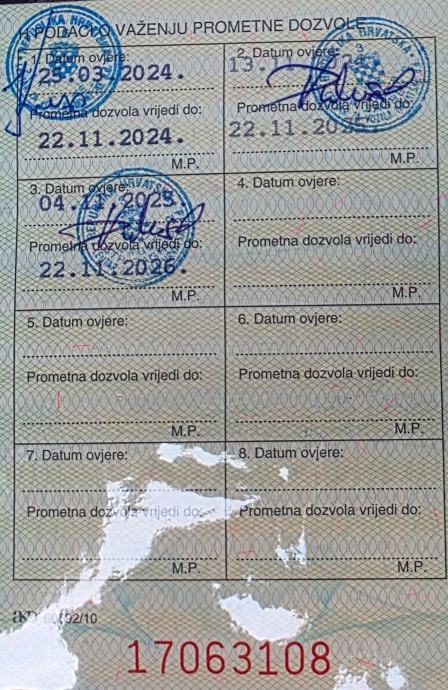 H PODACI O VAŽENJU PROMETNE DOZVOLE
1. Datum ovjere:
25.03.2024.
Prometna dozvola vrijedi do:
22.11.2024.
M.P.
2. Datum ovjere:
13.
Prometna dozvola vrijedi do:
22.11.
M.P.
3. Datum ovjere:
04.11.2025.
Prometna dozvola vrijedi do:
22.11.2026.
M.P.
4. Datum ovjere:
Prometna dozvola vrijedi do:
M.P.
5. Datum ovjere:
Prometna dozvola vrijedi do:
M.P.
6. Datum ovjere:
Prometna dozvola vrijedi do:
M.P.
7. Datum ovjere:
Prometna dozvola vrijedi do:
M.P.
8. Datum ovjere:
Prometna dozvola vrijedi do:
M.P.
17063108